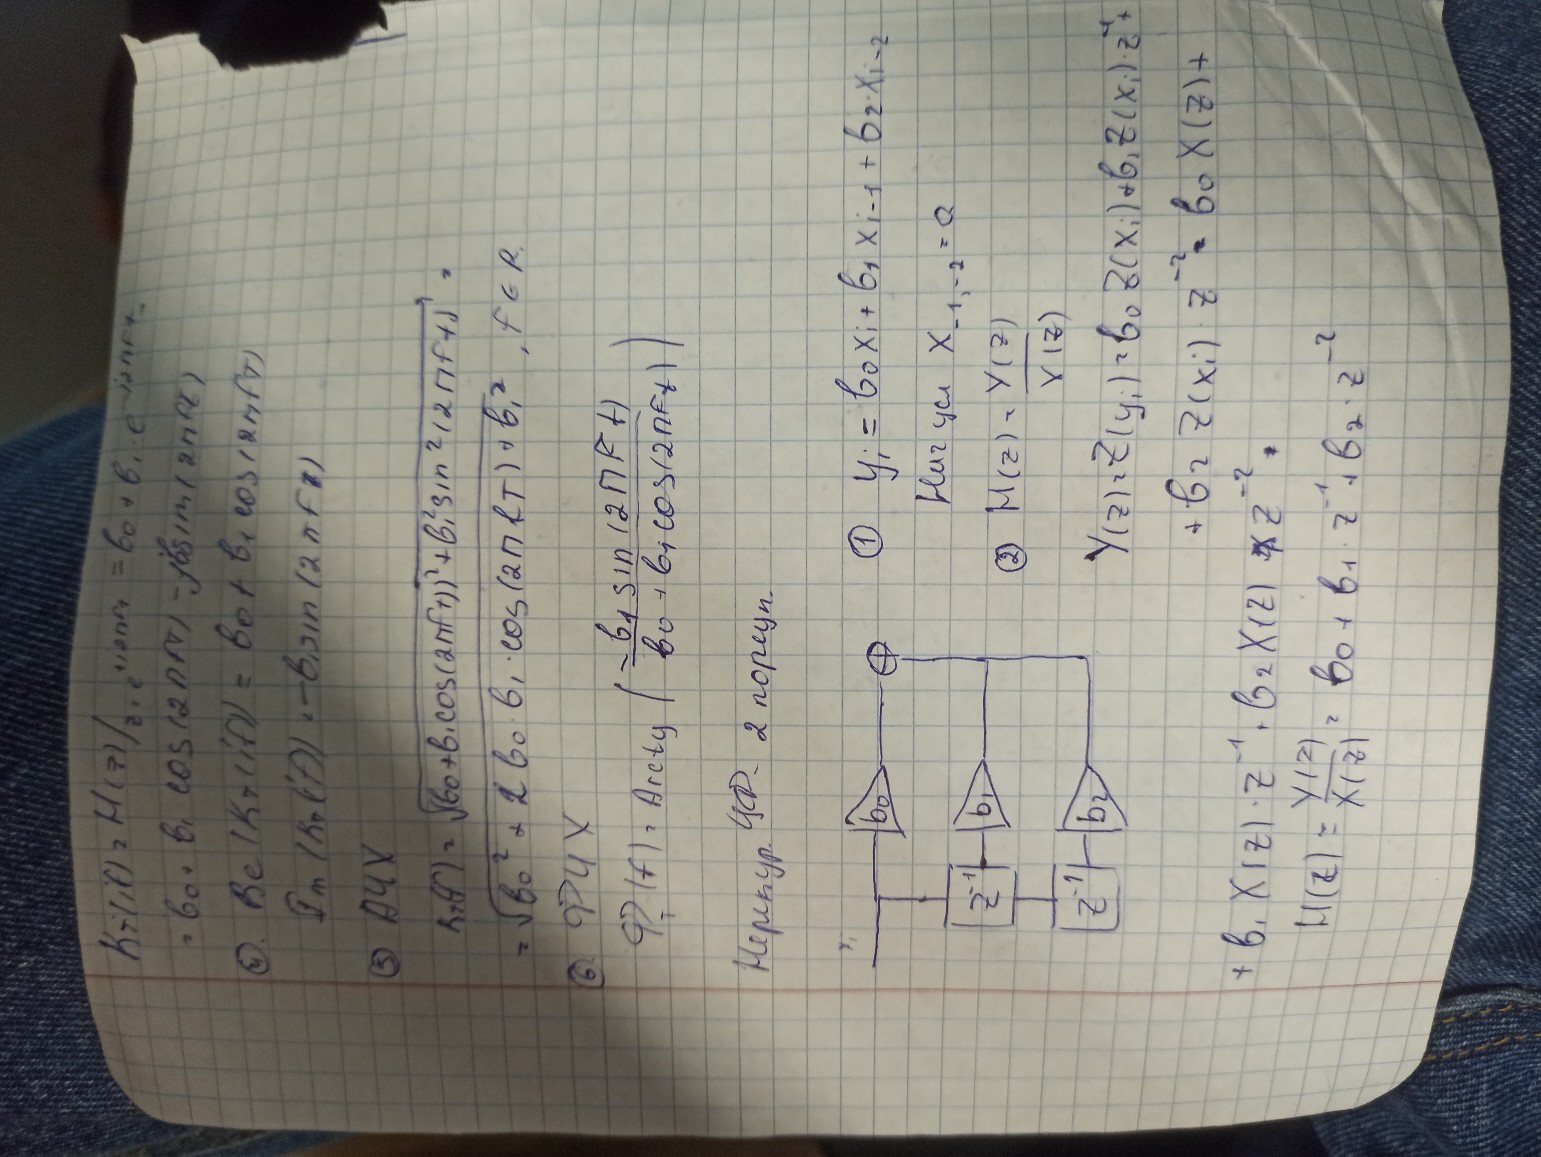 K_T(if) = H(z)/z=e^{+i2πfT} = b0 + b1 · e^{-i2πfT} =
= b0 + b1 cos(2πfT) - jb1sin(2πft)
④. Re(K_T(if)) = b0 + b1 cos(2πfT)
Im(K_T(if)) = -b1sin(2πft)
⑤ АЧХ
K_T(f) = √(b0+b1cos(2πft))² + b1²sin²(2πft) =
= √b0² + 2 b0 · b1 · cos(2πfT) + b1² , f ∈ R.
⑥. ФЧХ
φ_T(f) = Arctg ( -b1 sin(2πft) / b0 + b1cos(2πft) )
Нерекур. ЦФ 2 порядк.
x_i
b0
z^{-1} b1
z^{-1} b2
① y_i = b0x_i + b1 x_{i-1} + b2·x_{i-2}
Нач усл x_{-1,-2} = 0
② H(z) = Y(z) / Y(z)
Y(z) = Z(y_i) = b0 Z(x_i) + b1 Z(x_i)·z^{-1} +
+ b2 Z(x_i) · z^{-2} = b0 X(z) +
+ b1 X(z) · z^{-1} + b2 X(z) z^{-2} .
H(z) = Y(z) / X(z) = b0 + b1 · z^{-1} + b2 · z^{-2}